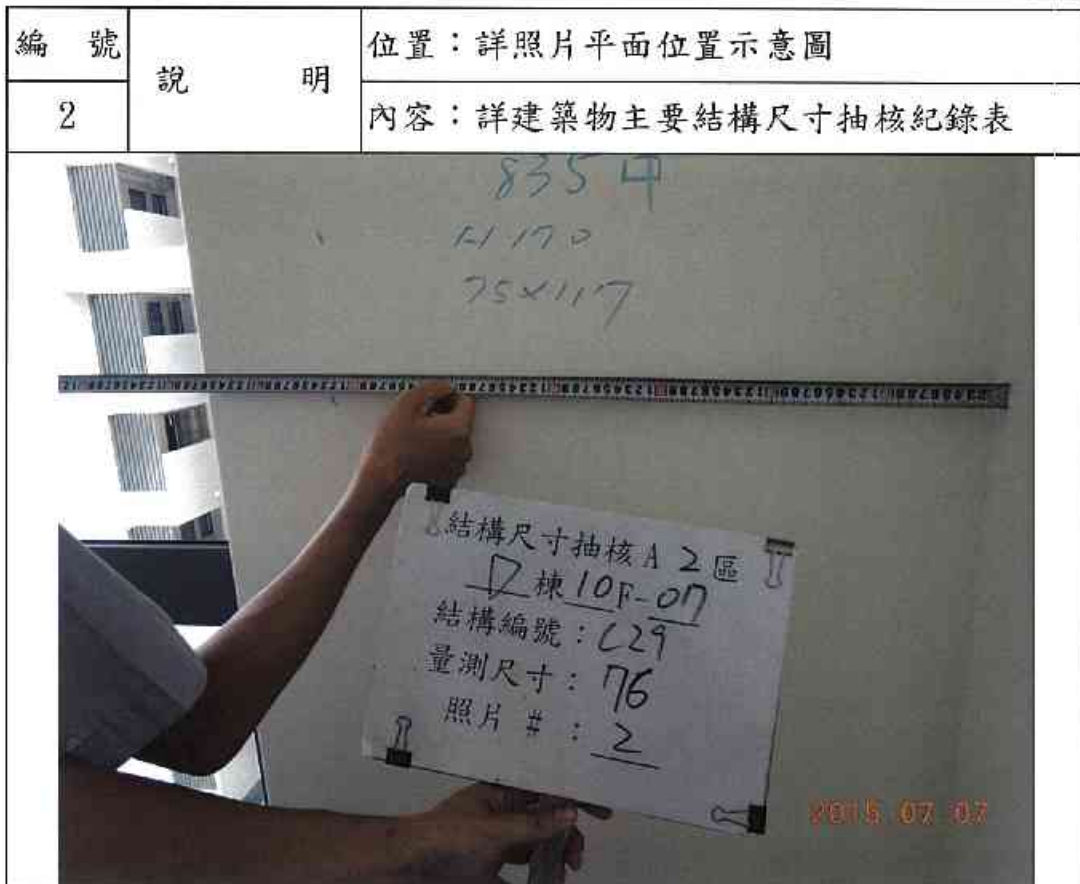 編號
說明
位置：詳照片平面位置示意圖
2
內容：詳建築物主要結構尺寸抽核紀錄表
835
H 170
75×117
結構尺寸抽核A 2區
D棟10F-07
結構編號：C29
量測尺寸：76
照片#：2
2015 07 07